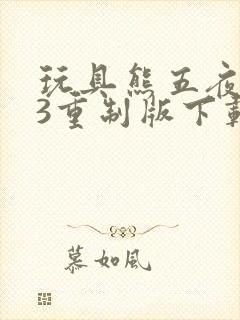 玩具熊五夜
3重制版下载
慕如风